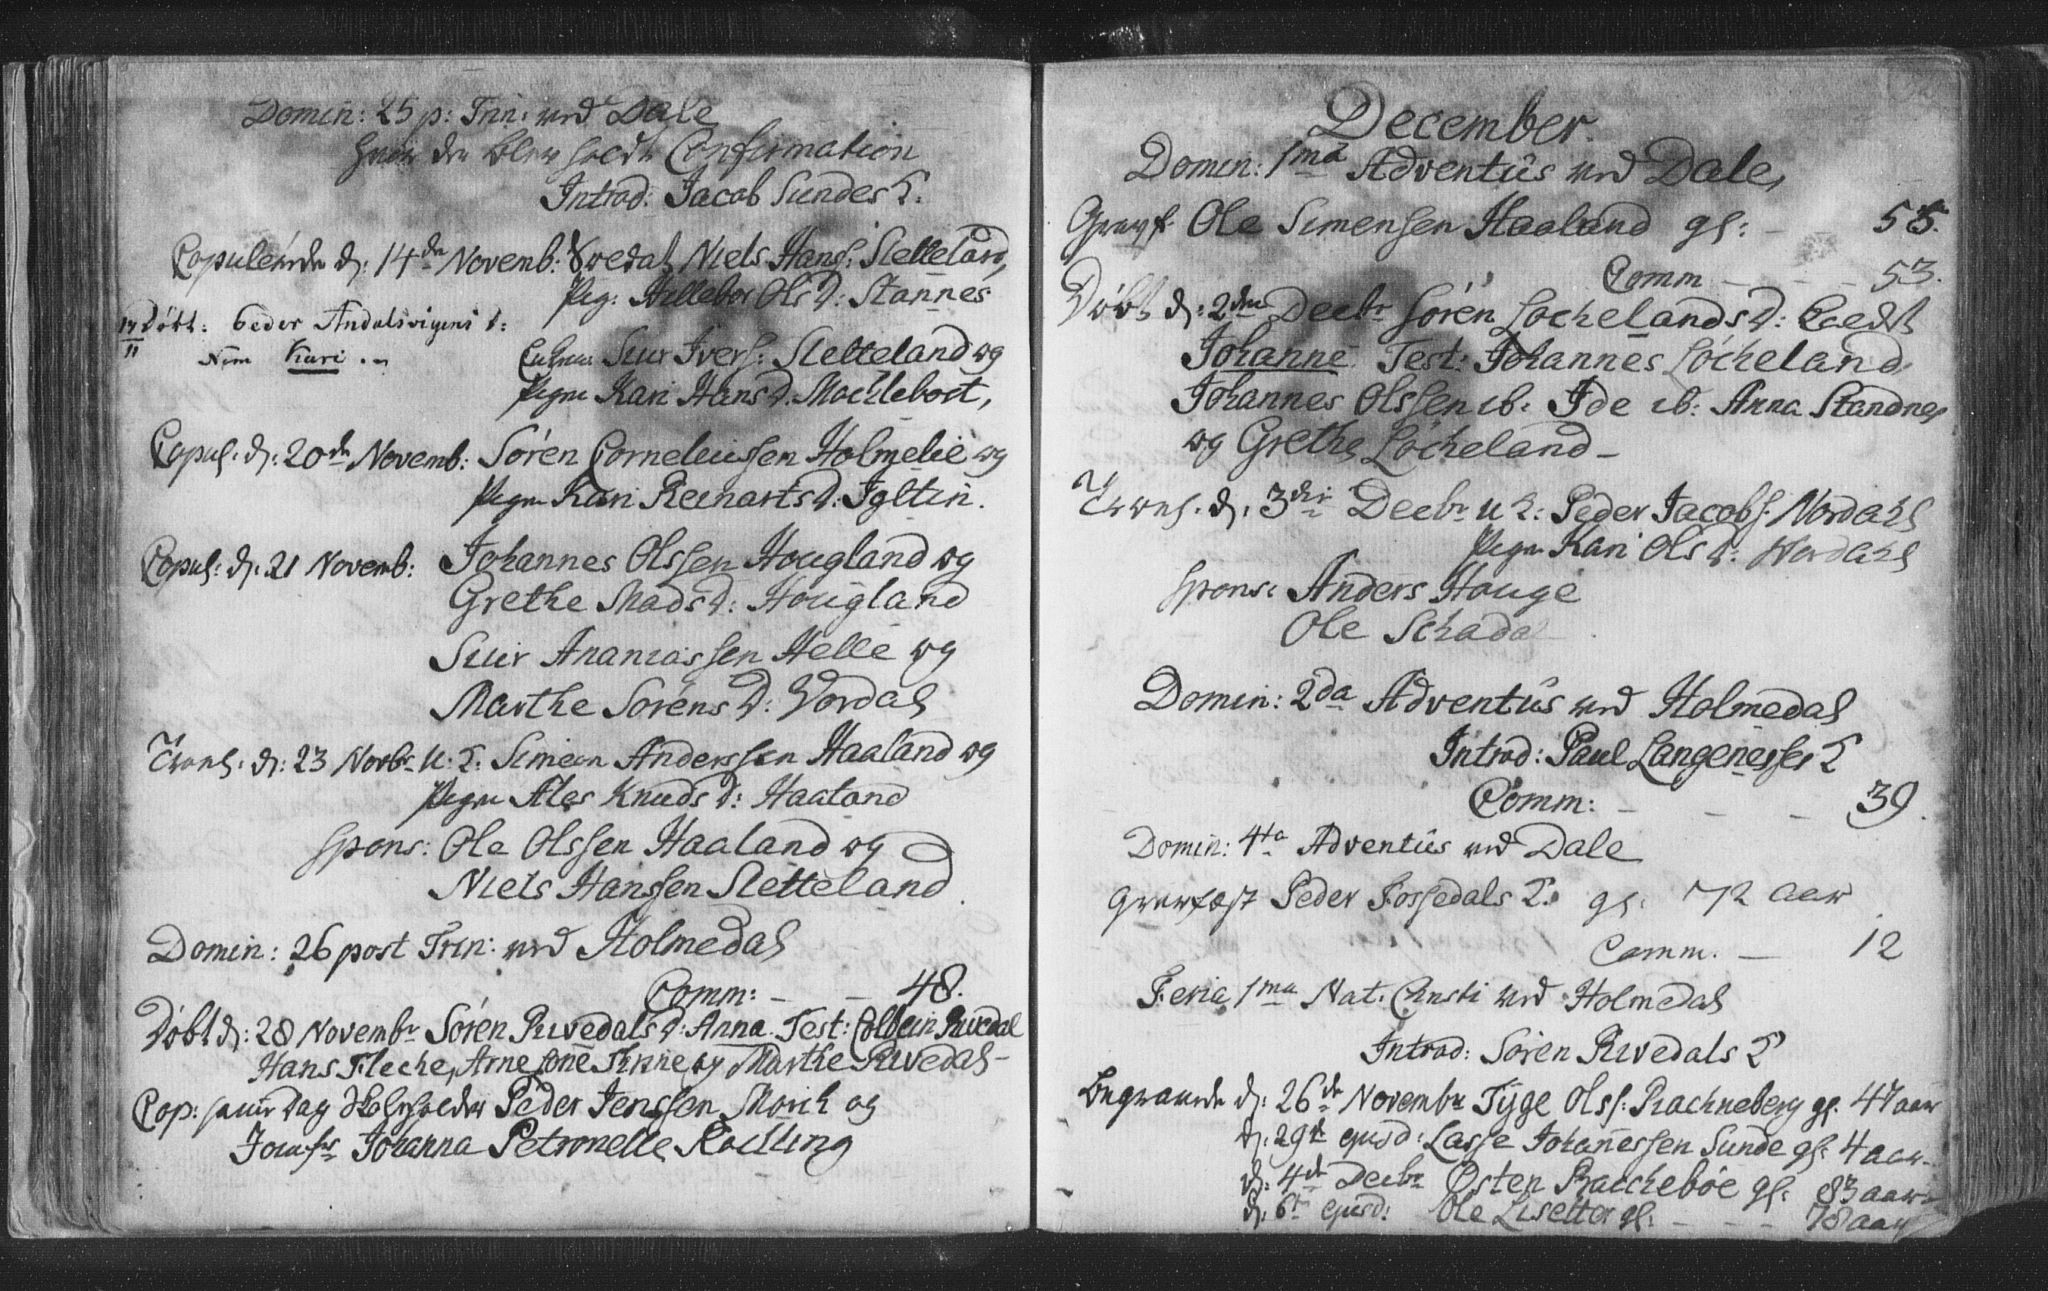 Domin: 25 p: Trin: ved Dale
hvor der blev holdt Confirmation
Introd: Jacob Sundes K.
Copulerede d: 14de Novemb: Niels Hans: Sletteland,
Pig: Hillebor Ols D: Stannes
17/11 Døbt: Peder Andalsvigens d:
Nom Kari
Siur Ivers: Sletteland og
Pigen Kari Hans D. Mochlebost,
Copul. d: 20de Novemb: Søren Corneliussen Holmelie og
Pigen Kari Reinarts D: Igltin.
Copul: d. 21 Novemb: Johannes Olssen Hougland og
Grethe Mads D: Hougland
Siur Ananiassen Helle og
Marthe Sørens D: Vordal
Trol. d: 23 Novbr U. K: Simeon Anderssen Haaland og
Pigen Ales Knuds D: Haaland
Spons: Ole Olssen Haaland og
Niels Hanssen Sletteland
Domin: 26 post Trin: ved Holmedal
Comm: - - 48.
Døbt d: 28 Novembr Søren Rivedals D: Anna. Test: Colbein Rivedal
Hans Fleche, Arne og Marthe Rivedal -
Cop: samme Dag Peder Jenssen Morch og
Jomfr Johanna Petronelle Rochling
December.
Domin: 1ma Adventus ved Dale,
Gravf. Ole Simensen Haaland gl: - - 55.
Comm - - - 53.
Døbt d: 2den Decbr Søren Løchelands D: kaldt
Johanne Test: Johannes Løcheland,
Johannes Olssen ib. Ide ib: Anna Standnes
og Grethe Løcheland -
Trol. d. 3die Decbr U K: Peder Jacobs. Nordahl
Pigen Kari Ols D: Nordahl
Spons: Anders Houge
Ole Schadal
Domin: 2da Adventus ved Holmedal
Introd: Paul Langenesses K
Comm: - - - 39.
Domin: 4ta Adventus ved Dale
Gravfæst Peder Fossedals K: gl. 72 aar
Comm. — 12
Feria 1ma Nat. Christi ved Holmedal
Introd: Søren Rivedals K
Begravede d: 26de Novembr Tÿge Olss: Rachneberg gl. 47 aar
d. 29d ejusd: Lasse Johanessen Sunde gl: 4 aar -
d: 4de Decbr Østen Raschebøe gl: 83 aar
d. 6t ejusd: Ole Lisetter gl: - - - 78 aar